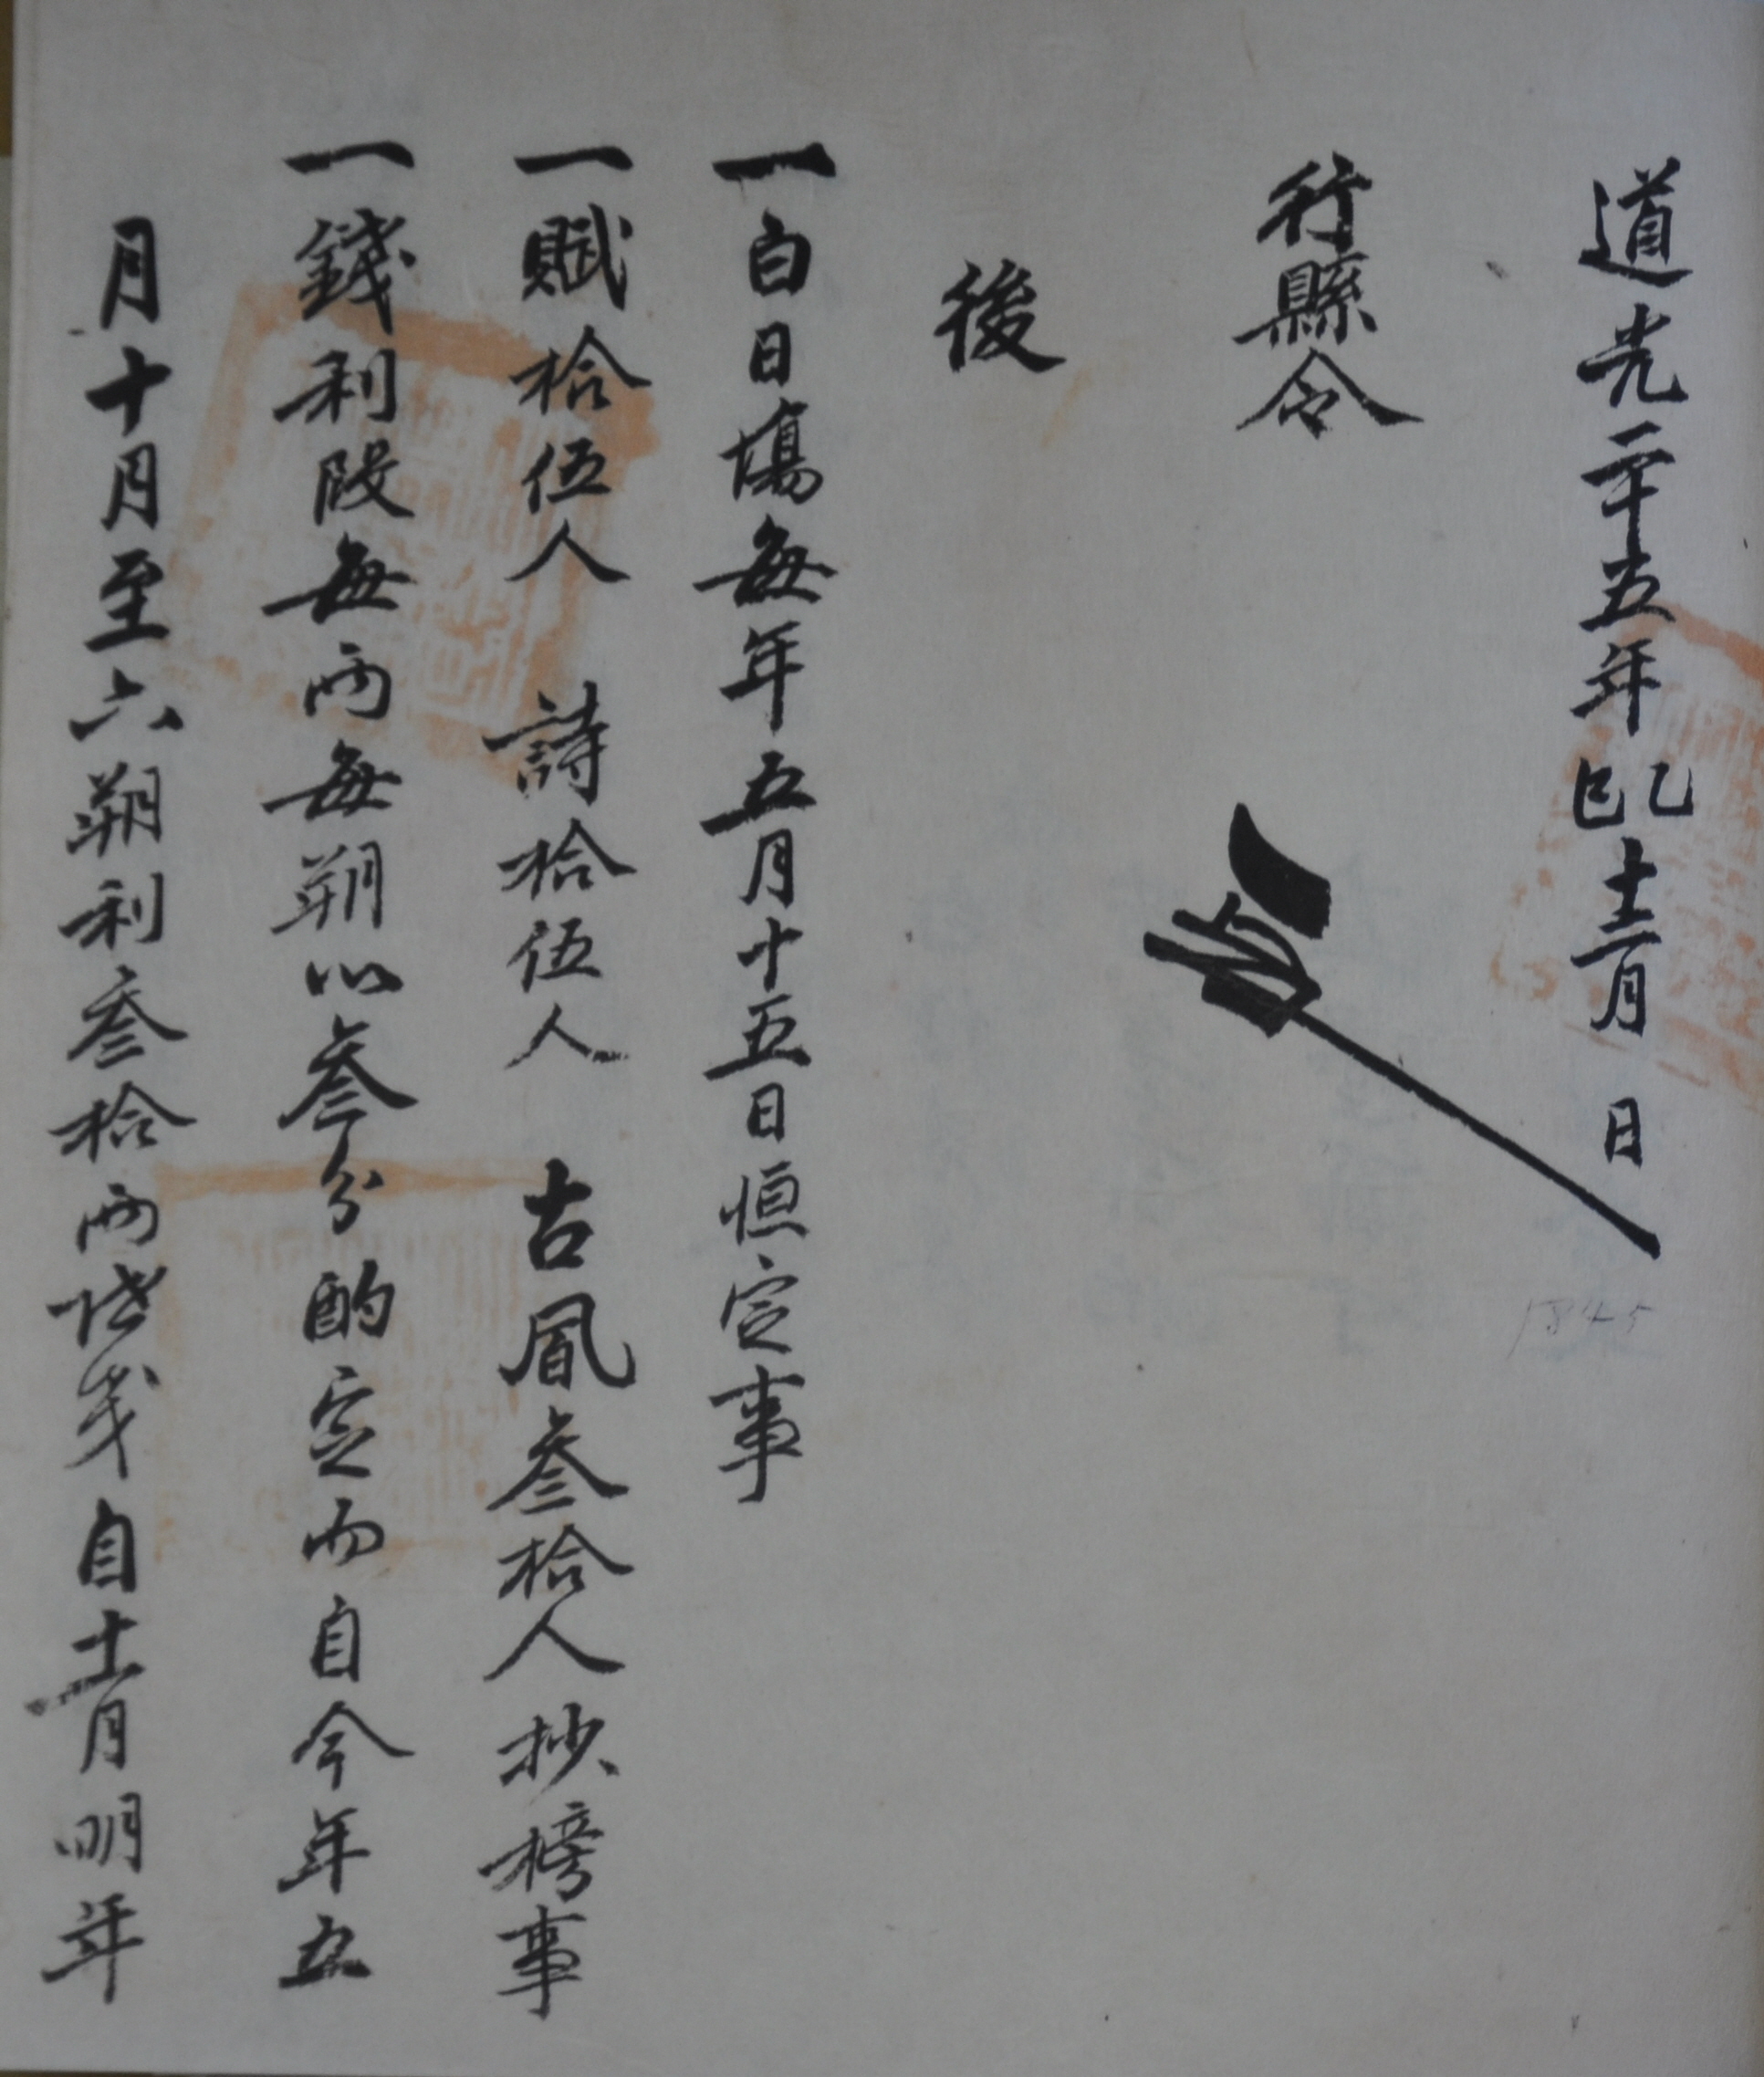 道光二十五年乙巳十二月 日
1845
行縣令
後
一白日場每年五月十五日恒定事
一賦拾伍人 詩拾伍人 古風叄拾人抄榜事
一錢利段每兩每朔以叄分酌定而自今年五
月十月至六朔利叄拾兩 自十一月明年